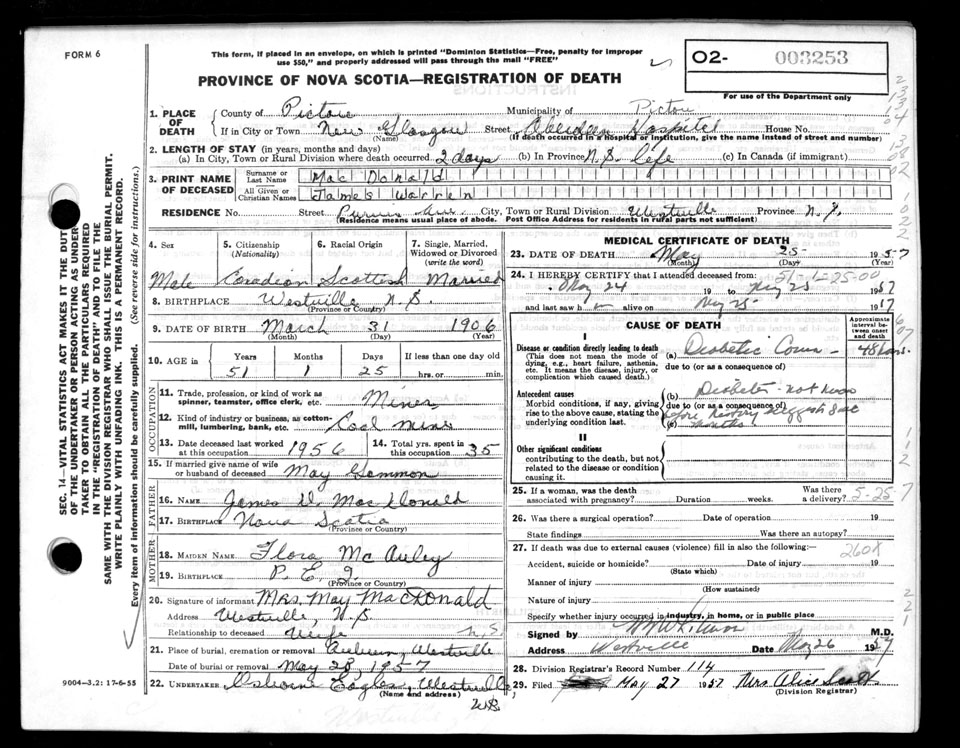 FORM 6
This form, if placed in an envelope, on which is printed "Dominion Statistics—Free, penalty for improper
use $50," and properly addressed will pass through the mail "FREE"
02- 003253
PROVINCE OF NOVA SCOTIA—REGISTRATION OF DEATH
For use of the Department only
1. PLACE OF DEATH
County of Pictou Municipality of Pictou
If in City or Town New Glasgow Street Aberdeen Hospital House No.
(Name) (If death occurred in a hospital or institution, give the name instead of street and number)
2. LENGTH OF STAY (in years, months and days)
(a) In City, Town or Rural Division where death occurred 2 days (b) In Province N.S. life (c) In Canada (if immigrant)
3. PRINT NAME OF DECEASED
Surname or Last Name Mac Donald
All Given or Christian Names James Warren
RESIDENCE No. Street Ave. City, Town or Rural Division Westville Province N.S.
(Residence means usual place of abode. Post Office Address for residents in rural parts not sufficient)
4. Sex Male
5. Citizenship (Nationality) Canadian
6. Racial Origin Scottish
7. Single, Married, Widowed or Divorced (write the word) Married
8. BIRTHPLACE Westville N.S.
(Province or Country)
9. DATE OF BIRTH March 31 1906
(Month) (Day) (Year)
10. AGE in Years Months Days If less than one day old
51 1 25 hrs. or min.
OCCUPATION
11. Trade, profession, or kind of work as
spinner, teamster, office clerk, etc. Miner
12. Kind of industry or business, as cotton-
mill, lumbering, bank, etc. Coal mine
13. Date deceased last worked
at this occupation 1956
14. Total yrs. spent in
this occupation 35
15. If married give name of wife
or husband of deceased May Gammon
FATHER
16. NAME James D. MacDonald
17. BIRTHPLACE Nova Scotia
(Province or Country)
MOTHER
18. MAIDEN NAME Flora McAuley
19. BIRTHPLACE P.E.I.
(Province or Country)
20. Signature of informant Mrs. May MacDonald
Address Westville, N.S.
Relationship to deceased Wife N.S.
21. Place of burial, cremation or removal Auburn, Westville
Date of burial or removal May 28, 1957
22. UNDERTAKER Osborne Eagles, Westville,
(Name and address)
9004—3.2: 17-6-55
MEDICAL CERTIFICATE OF DEATH
23. DATE OF DEATH May 25- 1957
(Month) (Day) (Year)
51-1-25-00
24. I HEREBY CERTIFY that I attended deceased from:
May 24 1957 to May 25 1957
and last saw h alive on May 25 1957
CAUSE OF DEATH
Approximate interval between onset and death
I
Disease or condition directly leading to death
(This does not mean the mode of
dying, e.g., heart failure, asthenia,
etc. It means the disease, injury, or
complication which caused death.)
(a) Diabetic Coma 48 hours.
due to (or as a consequence of)
Antecedent causes
Morbid conditions, if any, giving
rise to the above cause, stating the
underlying condition last.
(b) Diabetes - not known
due to (or as a consequence of)
before history suggests
(c) months
II
Other significant conditions
contributing to the death, but not
related to the disease or condition
causing it.
25. If a woman, was the death
associated with pregnancy? Duration weeks. Was there a delivery?
5-25 7
26. Was there a surgical operation? Date of operation 19
State findings Was there an autopsy?
27. If death was due to external causes (violence) fill in also the following:— 260X
Accident, suicide or homicide? Date of injury 19
(State which)
Manner of injury
(How sustained)
Nature of injury
Specify whether injury occurred in industry, in home, or in public place
Signed by M.D.
Address Westville Date May 26 1957
28. Division Registrar's Record Number 114
29. Filed May 27 1957 Mrs Alice Scott
(Division Registrar)
SEC. 14—VITAL STATISTICS ACT MAKES IT THE DUTY
OF THE UNDERTAKER OR PERSON ACTING AS UNDER-
TAKER TO OBTAIN ALL THE PARTICULARS REQUIRED
IN THE "REGISTRATION OF DEATH" AND TO FILE THE
SAME WITH THE DIVISION REGISTRAR WHO SHALL ISSUE THE BURIAL PERMIT.
WRITE PLAINLY WITH UNFADING INK. THIS IS A PERMANENT RECORD.
Every item of information should be carefully supplied. (See reverse side for instructions.)